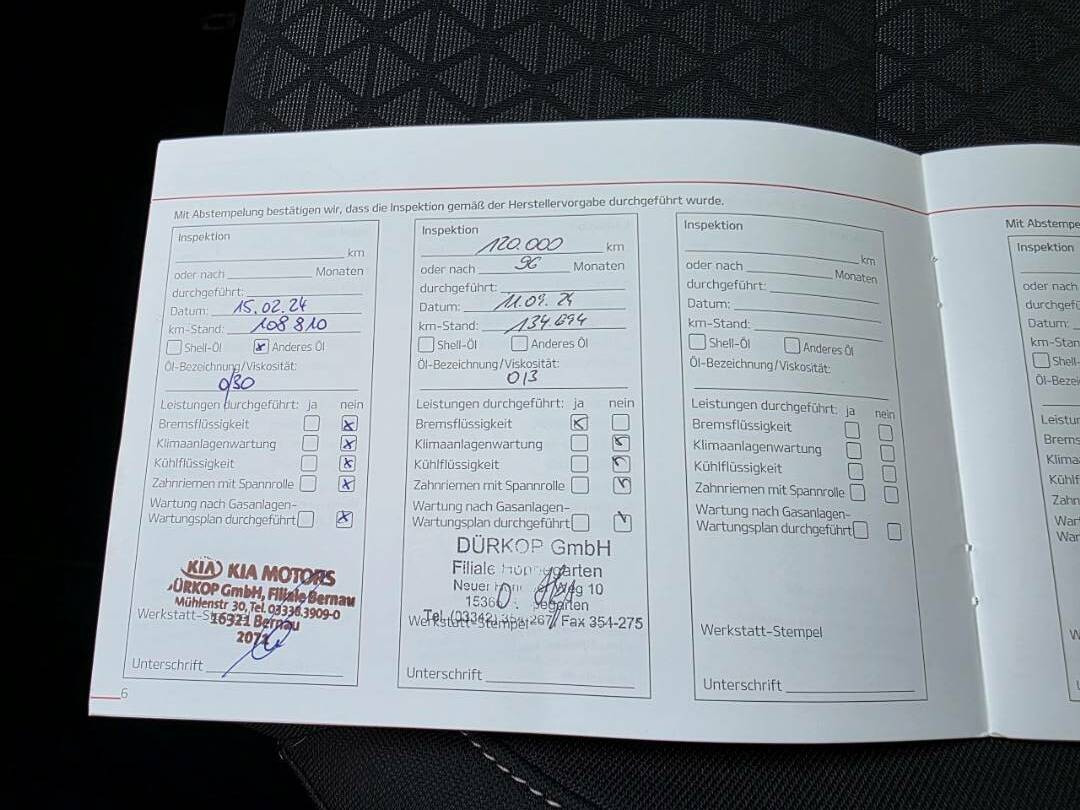 Mit Abstempelung bestätigen wir, dass die Inspektion gemäß der Herstellervorgabe durchgeführt wurde.
Inspektion
km
oder nach Monaten
durchgeführt:
Datum: 15.02.24
km-Stand: 108 810
Shell-Öl Anderes Öl
Öl-Bezeichnung/Viskosität:
0/30
Leistungen durchgeführt: ja nein
Bremsflüssigkeit
Klimaanlagenwartung
Kühlflüssigkeit
Zahnriemen mit Spannrolle
Wartung nach Gasanlagen-
Wartungsplan durchgeführt
KIA KIA MOTORS
DÜRKOP GmbH, Filiale Bernau
Mühlenstr 30, Tel. 03338.3909-0
Werkstatt-Stempel 16321 Bernau
2071
Unterschrift
6
Inspektion
120.000 km
oder nach 96 Monaten
durchgeführt:
Datum: 11.09.24
km-Stand: 134.694
Shell-Öl Anderes Öl
Öl-Bezeichnung/Viskosität:
0/3
Leistungen durchgeführt: ja nein
Bremsflüssigkeit
Klimaanlagenwartung
Kühlflüssigkeit
Zahnriemen mit Spannrolle
Wartung nach Gasanlagen-
Wartungsplan durchgeführt
DÜRKOP GmbH
Filiale Hönnegarten
Neuer Weg 10
Werkstatt-Stempel Fax 354-275
Unterschrift
Inspektion
km
oder nach Monaten
durchgeführt:
Datum:
km-Stand:
Shell-Öl Anderes Öl
Öl-Bezeichnung/Viskosität:
Leistungen durchgeführt: ja nein
Bremsflüssigkeit
Klimaanlagenwartung
Kühlflüssigkeit
Zahnriemen mit Spannrolle
Wartung nach Gasanlagen-
Wartungsplan durchgeführt
Werkstatt-Stempel
Unterschrift
Mit Abstempe
Inspektion
oder nach
durchgefü
Datum:
km-Stan
Shell
Öl-Bezei
Leistur
Brems
Klima
Kühlf
Zahn
War
War